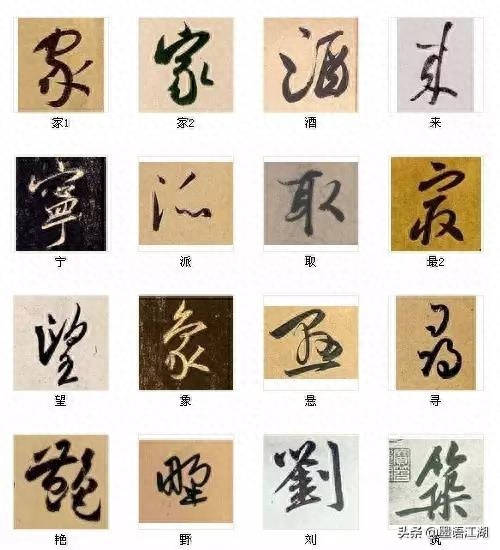 家 家 酒 来
家1 家2 酒 来
寧 派 取 最
宁 派 取 最2
望 象 悬 尋
望 象 悬 寻
艳 野 劉 築
艳 野 刘 筑
头条 @墨语江湖